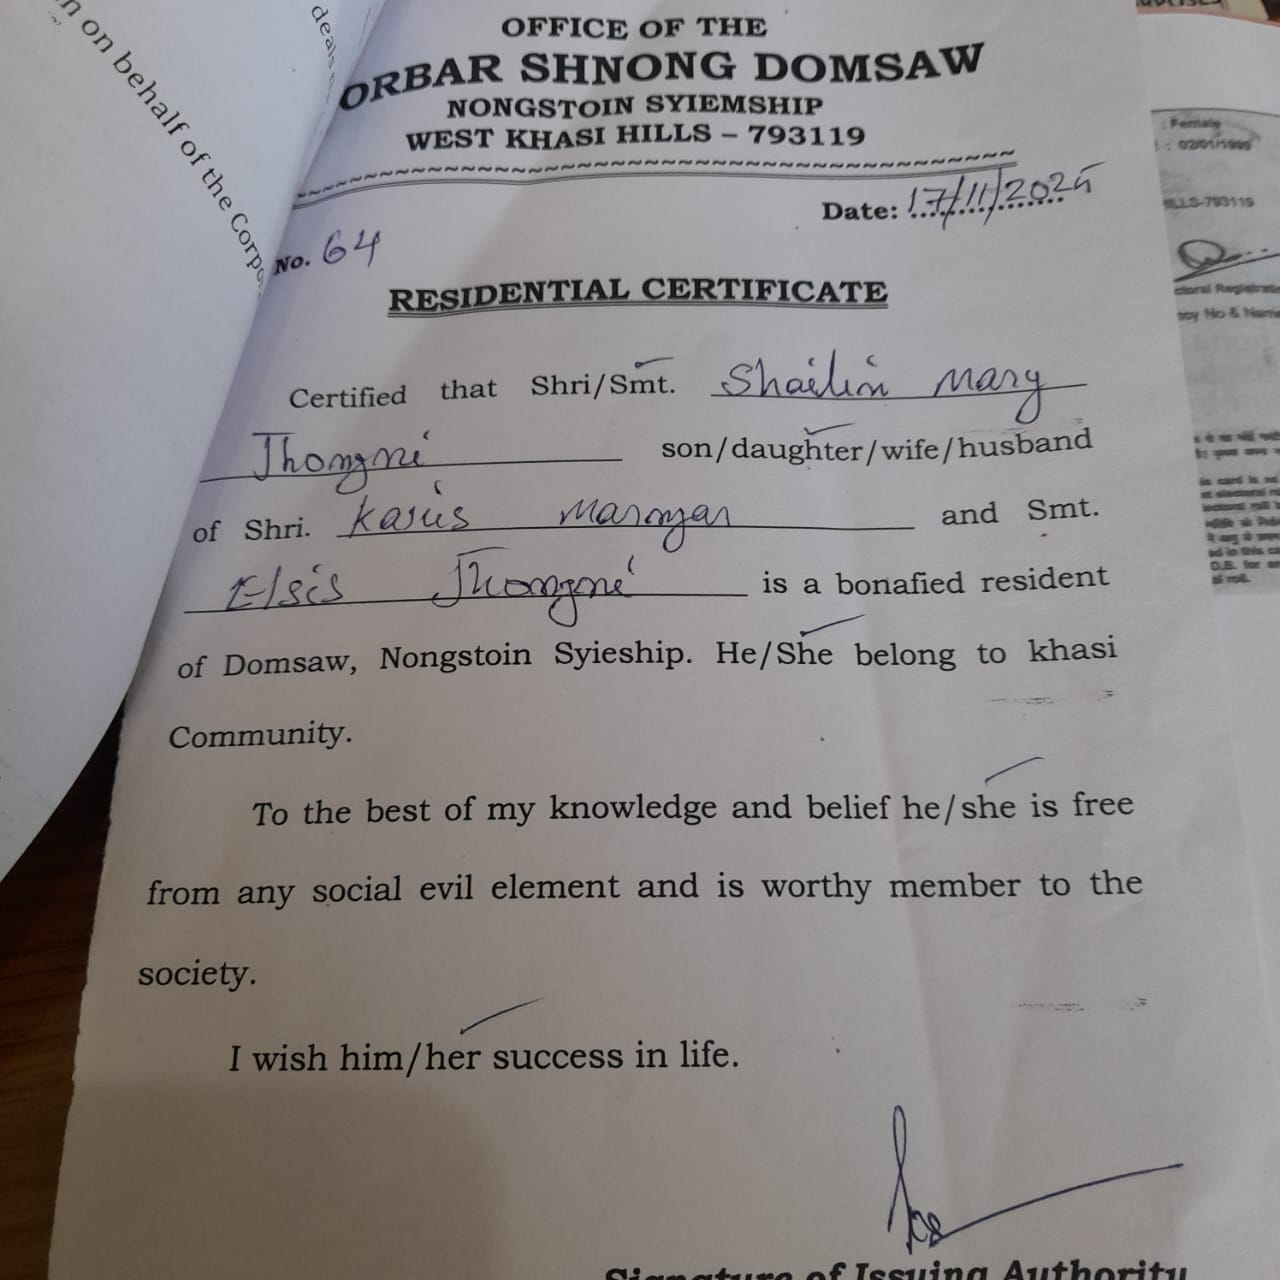 n on behalf of the Corpo
deals
OFFICE OF THE
ORBAR SHNONG DOMSAW
NONGSTOIN SYIEMSHIP
WEST KHASI HILLS – 793119
Date: 17/11/2025
No. 64
RESIDENTIAL CERTIFICATE
Certified that Shri/Smt. Shailin Mary
Jhongni son/daughter/wife/husband
of Shri. Karius Marngar and Smt.
Elsis Jhongni is a bonafied resident
of Domsaw, Nongstoin Syieship. He/She belong to khasi
Community.
To the best of my knowledge and belief he/she is free
from any social evil element and is worthy member to the
society.
I wish him/her success in life.
Signature of Issuing Authority
: Female
: 02/01/1999
ILLS-793119
ctoral Registrati
ncy No & Name